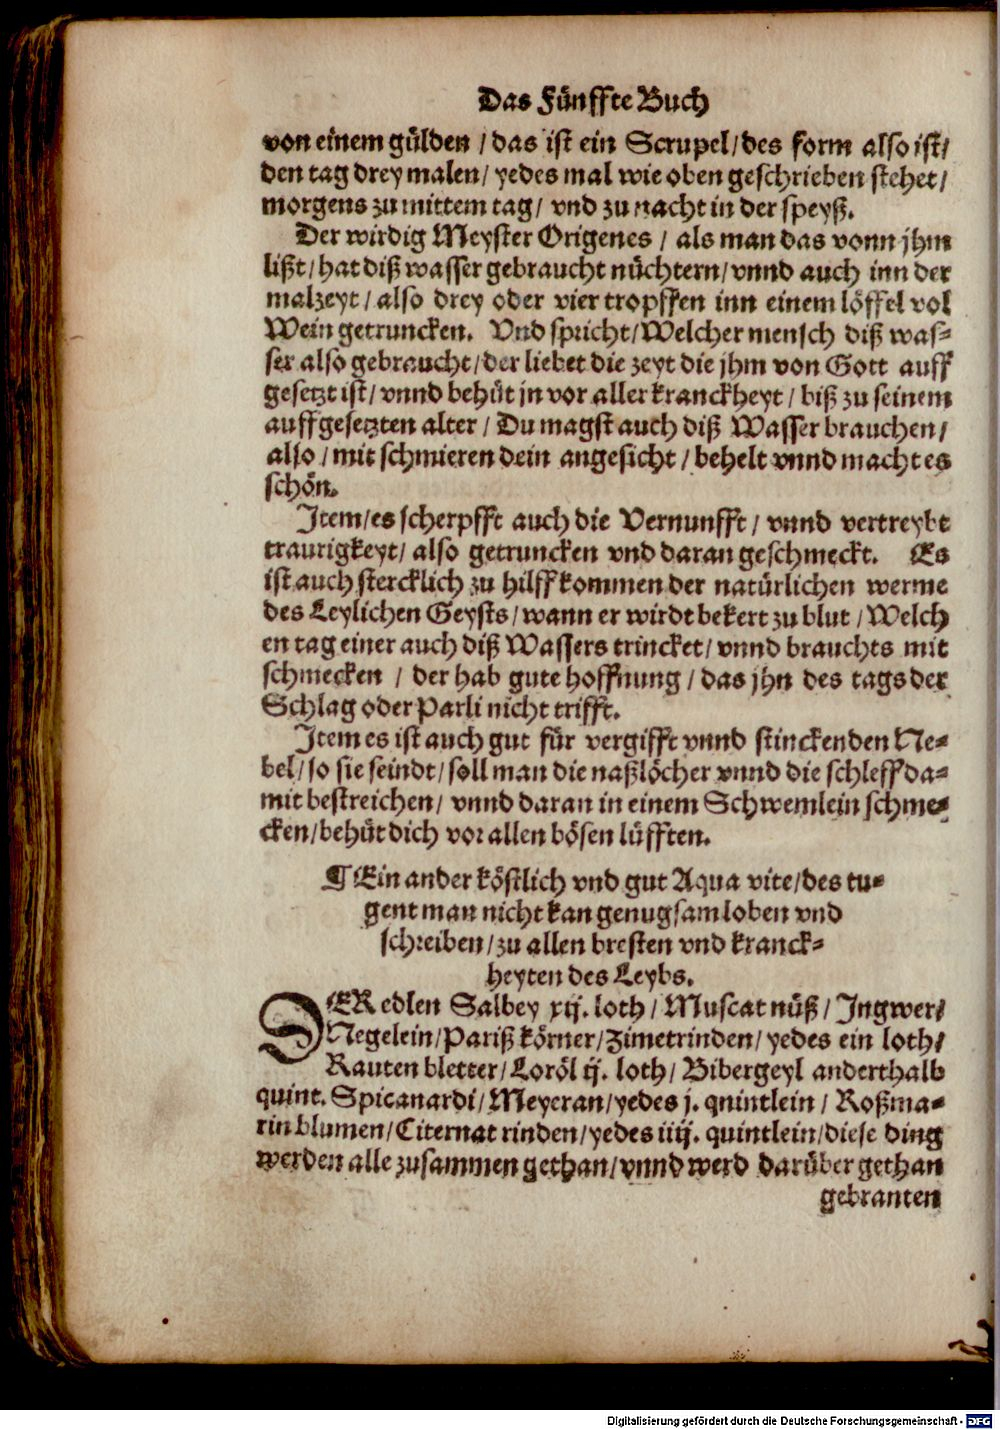 Das Fünffte Buch
von einem gülden / das ist ein Scrupel / des form also ist /
den tag drey malen / yedes mal wie oben geschrieben stehet /
morgens zu mittem tag / vnd zu nacht in der speyß.
Der wirdig Meyster Origenes / als man das vonn jhm
lißt / hat diß wasser gebraucht nüchtern / vnnd auch inn der
malzeyt / also drey oder vier tropffen inn einem löffel vol
Wein getruncken. Vnd spricht / Welcher mensch diß was-
ser also gebraucht / der liebet die zeyt die jhm von Gott auff
gesetzt ist / vnnd behüt jn vor aller kranckheyt / biß zu seinem
auffgesetzten alter / Du magst auch diß Wasser brauchen /
also / mit schmieren dein angesicht / behelt vnnd macht es
schön.
Item / es scherpfft auch die Vernunfft / vnnd vertreybt
traurigkeyt / also getruncken vnd daran geschmeckt. Es
ist auch stercklich zu hilff kommen der natürlichen werme
des Leylichen Geysts / wann er wirdt bekert zu blut / Welch
en tag einer auch diß Wassers trincket / vnnd brauchts mit
schmecken / der hab gute hoffnung / das jhn des tags der
Schlag oder Parli nicht trifft.
Item es ist auch gut für vergifft vnnd stinckenden Ne-
bel / so sie seindt / soll man die naßlöcher vnnd die schleff da-
mit bestreichen / vnnd daran in einem Schwemlein schme-
cken / behüt dich vor allen bösen lüfften.
¶ Ein ander köstlich vnd gut Aqua vite / des tu-
gent man nicht kan genugsam loben vnd
schreiben / zu allen bresten vnd kranck-
heyten des Leybs.
DER edlen Salbey xij. loth / Muscat nüß / Ingwer /
Negelein / Pariß körner / Zimetrinden / yedes ein loth /
Rauten bletter / Loröl ij. loth / Bibergeyl anderthalb
quint. Spicanardi / Meyeran / yedes j. qnintlein / Roßma-
rin blumen / Citernat rinden / yedes iiij. quintlein / diese ding
werden alle zusammen gethan / vnnd werd darüber gethan
gebranten
Digitalisierung gefördert durch die Deutsche Forschungsgemeinschaft - DFG